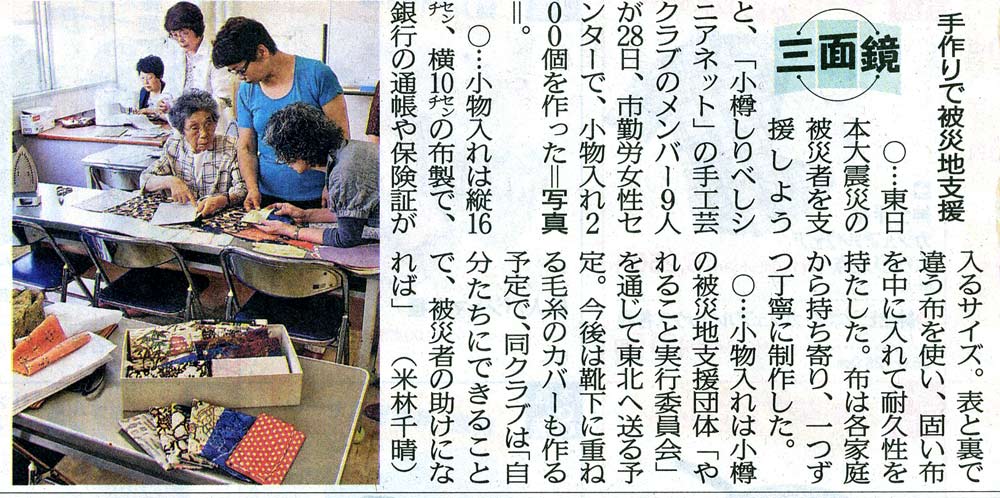 手作りで被災地支援
三面鏡
○…東日
本大震災の
被災者を支
援しよう
と、「小樽しりべしシ
ニアネット」の手工芸
クラブのメンバー9人
が28日、市勤労女性セ
ンターで、小物入れ2
00個を作った＝写真
＝。
○…小物入れは縦16
㌢、横10㌢の布製で、
銀行の通帳や保険証が
入るサイズ。表と裏で
違う布を使い、固い布
を中に入れて耐久性を
持たした。布は各家庭
から持ち寄り、一つず
つ丁寧に制作した。
○…小物入れは小樽
の被災地支援団体「や
れること実行委員会」
を通じて東北へ送る予
定。今後は靴下に重ね
る毛糸のカバーも作る
予定で、同クラブは「自
分たちにできること
で、被災者の助けにな
れば」（米林千晴）